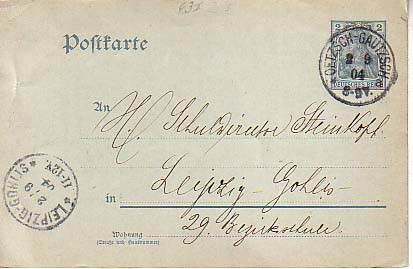 Postkarte
2 2
DEUTSCHES REICH
* OETZSCH-GAUTZSCH *
2 9
04
8-9V.
An
H. Schuldirector Steinkopf.
in Leipzig-Gohlis
29. Bezirksschule.
Wohnung
(Straße und Hausnummer)
* LEIPZIG-GOHLIS *
2. 9.
04
11-12V.